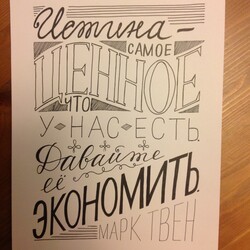 Истина –
САМОЕ
ЦЕННОЕ
ЧТО
У НАС ЕСТЬ.
Давайте
её
ЭКОНОМИТЬ.
МАРК ТВЕН